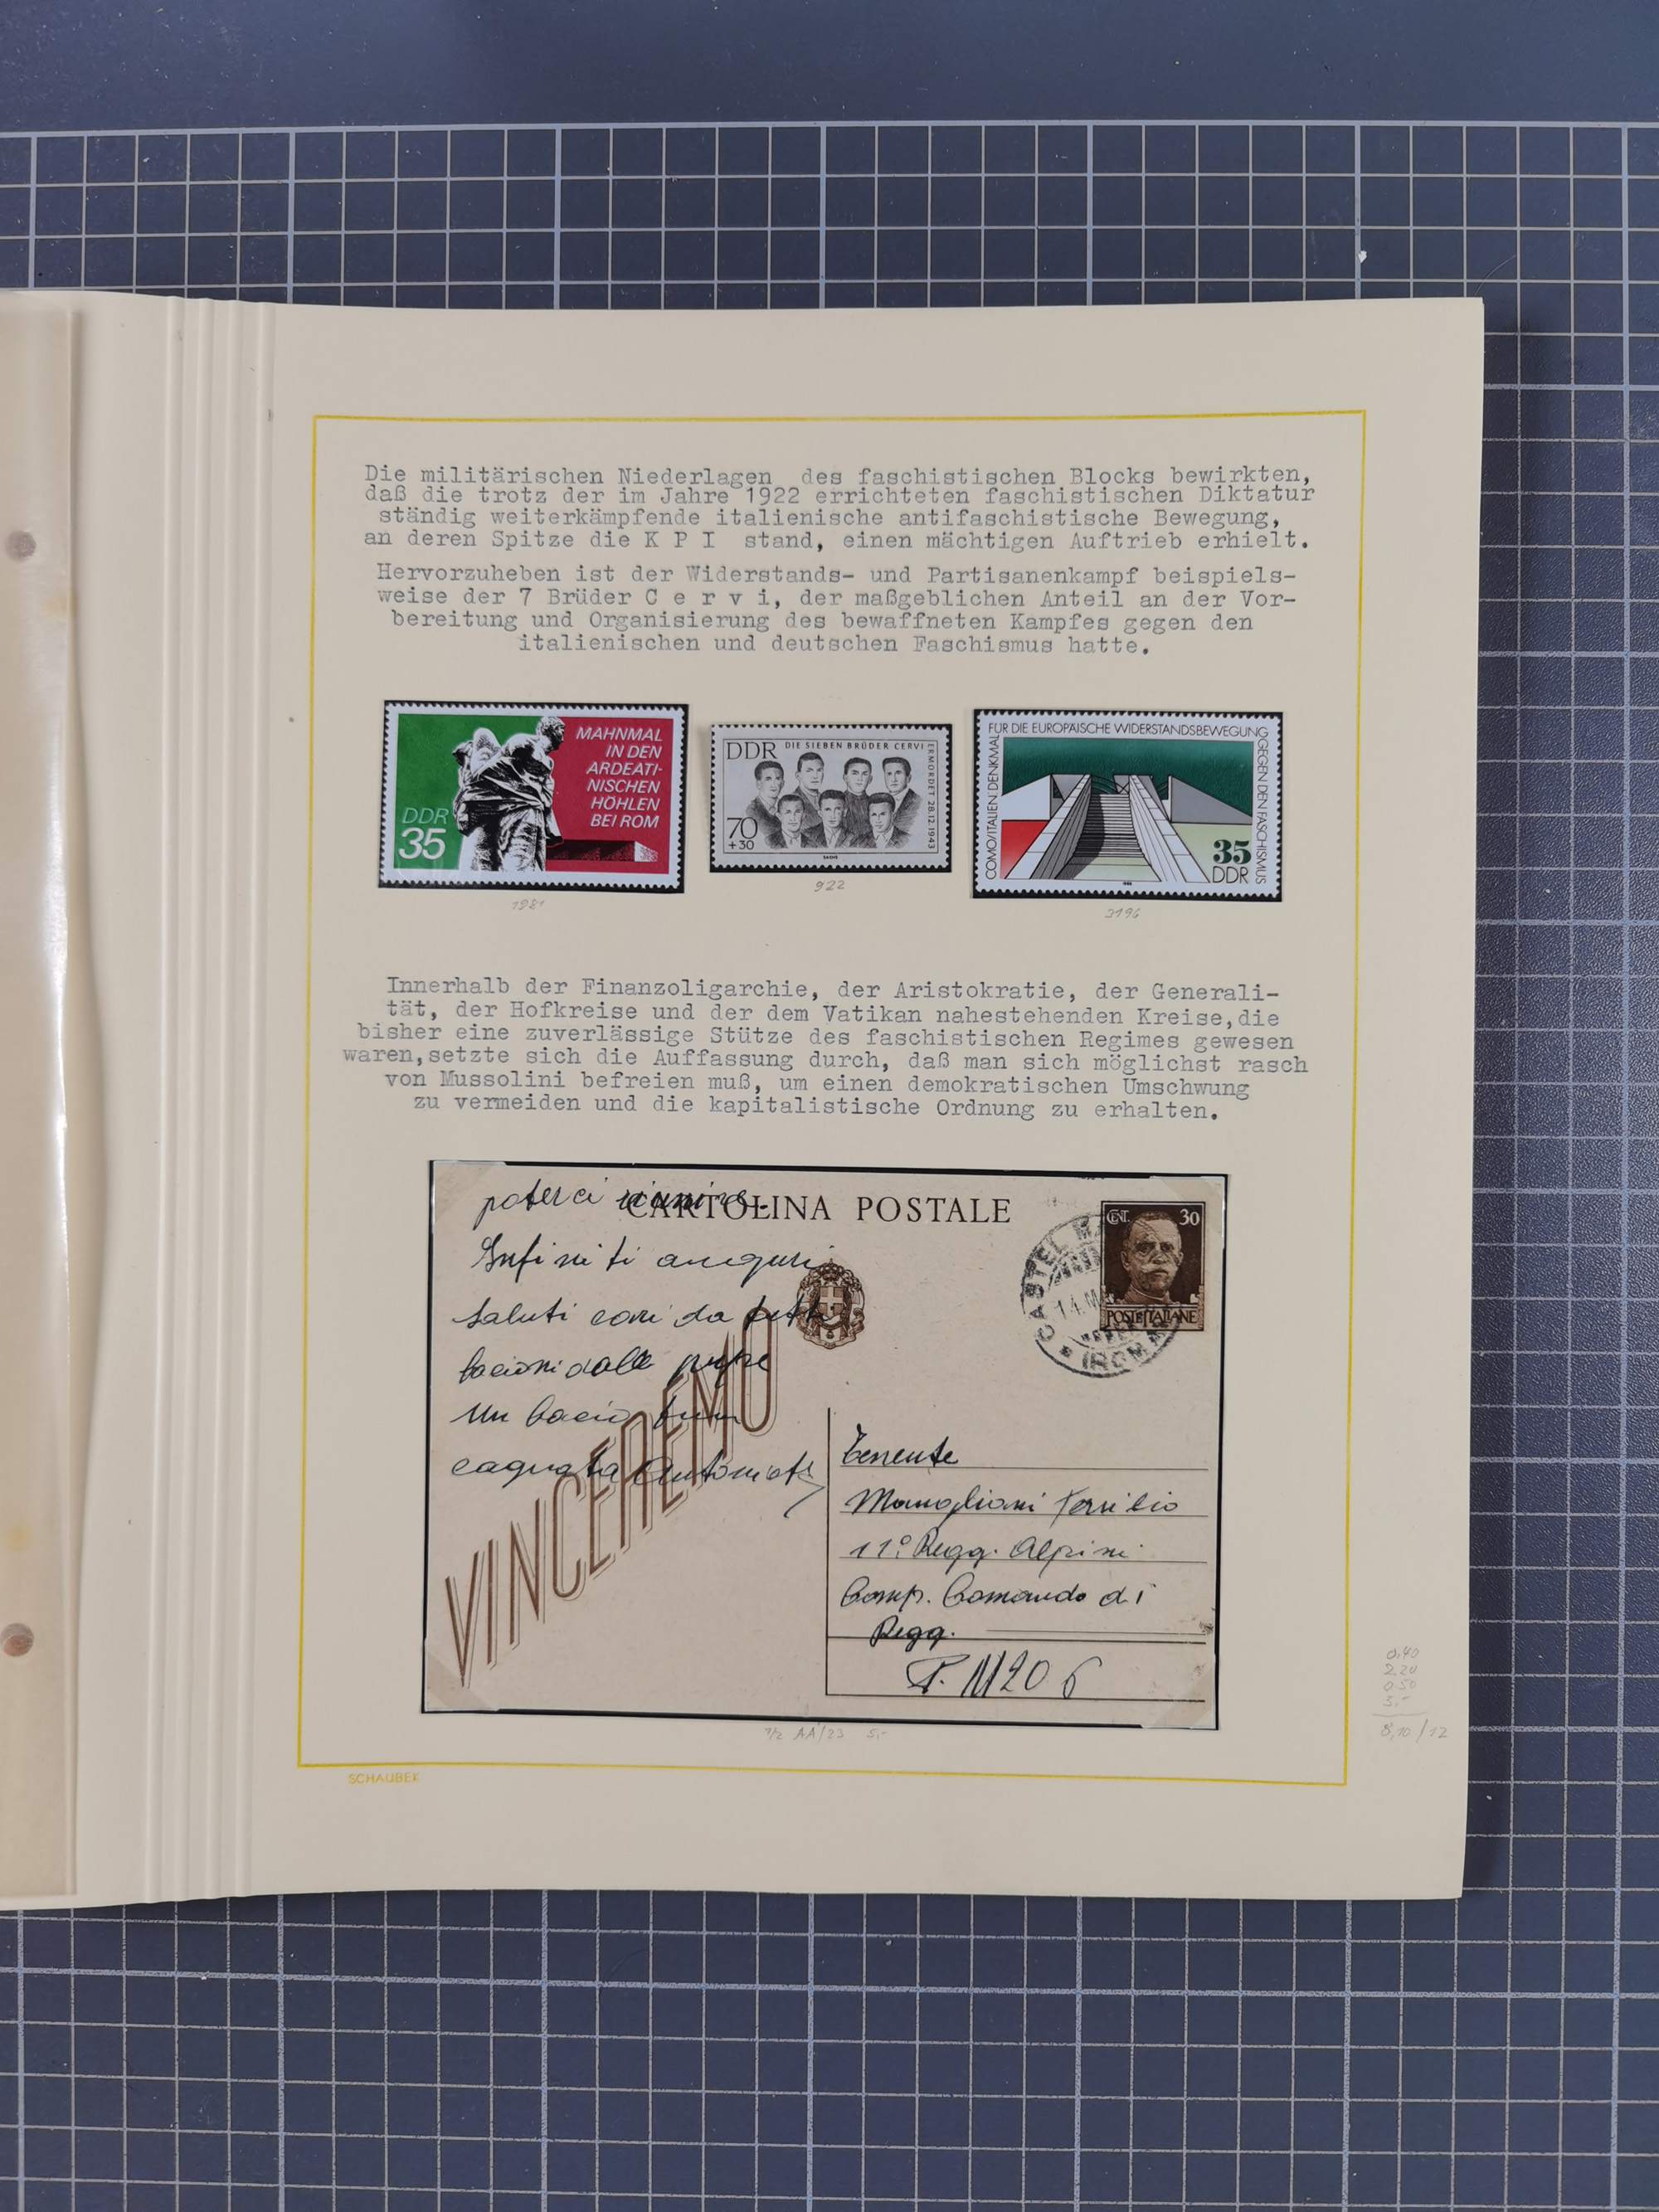 Die militärischen Niederlagen des faschistischen Blocks bewirkten,
daß die trotz der im Jahre 1922 errichteten faschistischen Diktatur
ständig weiterkämpfende italienische antifaschistische Bewegung,
an deren Spitze die K P I stand, einen mächtigen Auftrieb erhielt.
Hervorzuheben ist der Widerstands- und Partisanenkampf beispiels-
weise der 7 Brüder C e r v i, der maßgeblichen Anteil an der Vor-
bereitung und Organisierung des bewaffneten Kampfes gegen den
italienischen und deutschen Faschismus hatte.
MAHNMAL
IN DEN
ARDEATI-
NISCHEN
HÖHLEN
BEI ROM
DDR
35
1981
DDR DIE SIEBEN BRÜDER CERVI
ERMORDET 28.12.1943
70
+30
922
COMO/ITALIEN: DENKMAL
FÜR DIE EUROPÄISCHE WIDERSTANDSBEWEGUNG
GEGEN DEN FASCHISMUS
35
DDR
3196
Innerhalb der Finanzoligarchie, der Aristokratie, der Generali-
tät, der Hofkreise und der dem Vatikan nahestehenden Kreise,die
bisher eine zuverlässige Stütze des faschistischen Regimes gewesen
waren,setzte sich die Auffassung durch, daß man sich möglichst rasch
von Mussolini befreien muß, um einen demokratischen Umschwung
zu vermeiden und die kapitalistische Ordnung zu erhalten.
CARTOLINA POSTALE
poterci riunire.
Infiniti auguri
saluti cari da tutti
bacioni dalle pupe
un bacio
cognata
VINCEREMO
CENT. 30
POSTE ITALIANE
CASTEL
14
ROMA
Tenente
11° Regg. Alpini
Comp. Comando di
Regg.
P. M 206
7/2 AA/23 5,-
0,40
2.20
0.50
5,-
8,10/12
SCHAUBEK